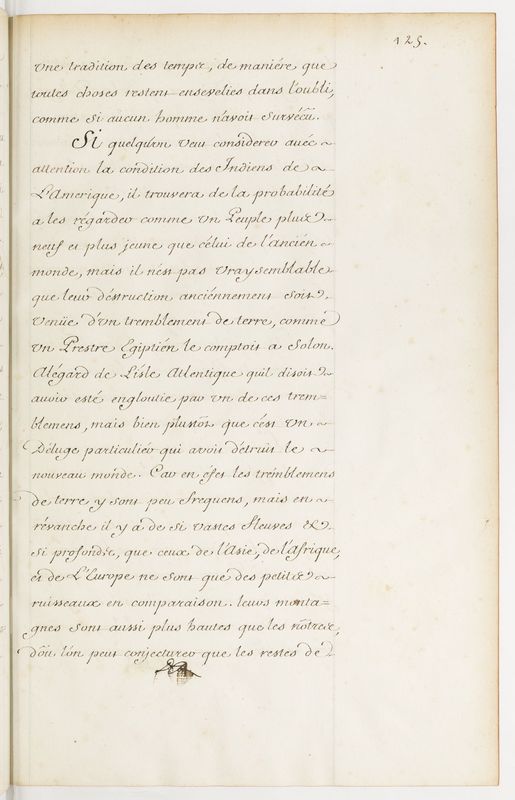 125.
une tradition des temps, de maniére que
toutes choses restent ensevelies dans l'oubli,
comme si aucun homme n'avoit survécû.
Si quelqu'un veut considerer avéc
attention la condition des Indiens de
L'Amerique, il trouvera de la probabilité
a les régarder comme un Peuple plus
neuf et plus jeune que célui de l'ancién
monde, mais il n'ést pas vray semblable
que leur déstruction anciénnement soit
venüe d'un tremblement de terre, commé
un Prestre Egiptién le comptoit a Solon.
Alégard de Lisle Atlentique quil disoit
avoir esté engloutie par un de ces trem=
blemens, mais bien plustôt que cést un
Déluge particuliér qui avoit détruit le
nouveau monde. Car en éfet les trémblemens
de terre y sont peu frequens, mais en
révanche il y a de si vastes fleuves et
si profonds, que ceux de l'Asie, de l'Afrique,
et de L'Europe ne sont que des petits
ruisseaux en comparaison. leurs monta=
gnes sont aussi plus hautes que les nôtres,
d'ôu l'ón peut conjecturer que les restes de